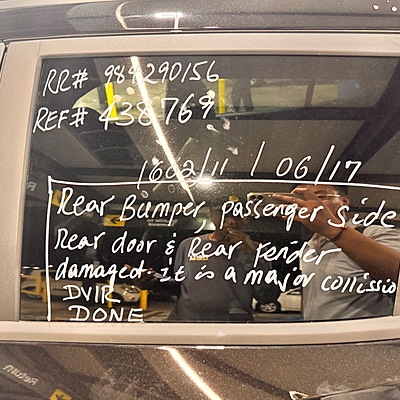 RR# 989290156
REF# 438769
1602/11 / 06/17
Rear Bumper, passenger side
Rear door & Rear Fender
damaged. it is a major collissio
DVIR
DONE